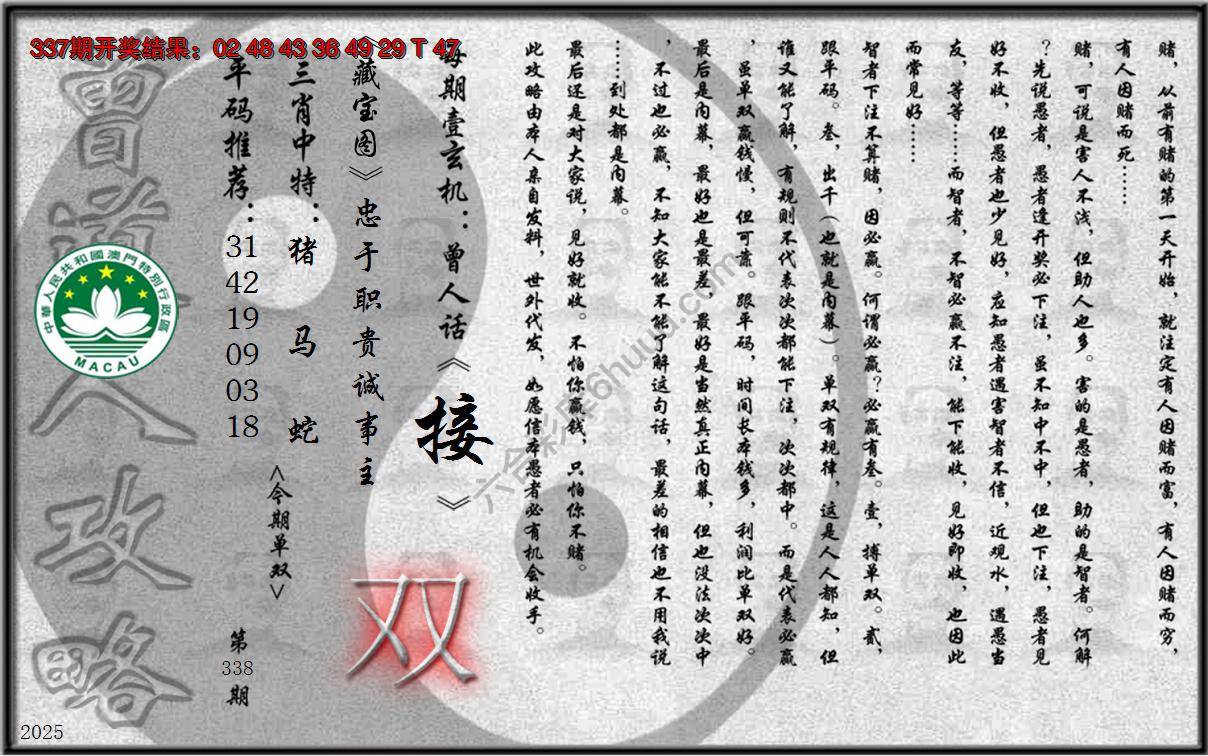 337期开奖结果：02 48 43 36 49 29 T 47
赌，从前有赌的第一天开始，就注定有人因赌而富，有人因赌而穷，
有人因赌而死……
赌，可说是害人不浅，但助人也多。害的是愚者，助的是智者。何解
？先说愚者，愚者逢开奖必下注，虽不知中不中，但也下注，愚者见
好不收，但愚者也少见好，应知愚者遇害智者不信，近观水，遇愚当
友，等等……而智者，不智必赢不注，能下能收，见好即收，也因此
而常见好……
智者下注不算赌，因必赢。何谓必赢？必赢有叁。壹，搏单双。贰，
跟平码。叁，出千（也就是内幕）。单双有规律，这是人人都知，但
谁又能了解，有规则不代表次次都能下注，次次都中。而是代表必赢
，虽单双赢钱慢，但可靠。跟平码，时间长本钱多，利润比单双好。
最后是内幕，最好也是最差，最好是当然真正内幕，但也没法次次中
，不过也必赢，不知大家能不能了解这句话，最差的相信也不用我说
……到处都是内幕。
最后还是对大家说，见好就收。不怕你赢钱，只怕你不赌。
此攻略由本人亲自发料，世外代发，如愿信本愚者必有机会收手。
每期壹玄机：曾人话《接》
《藏宝图》忠于职贵诚事主
双
三肖中特：猪 马 蛇
<今期单双>
平码推荐：
31
42
19
09
03
18
第338期
曾道人攻略
中華人民共和國澳門特別行政區
MACAU
六合彩库6huuu.com
2025